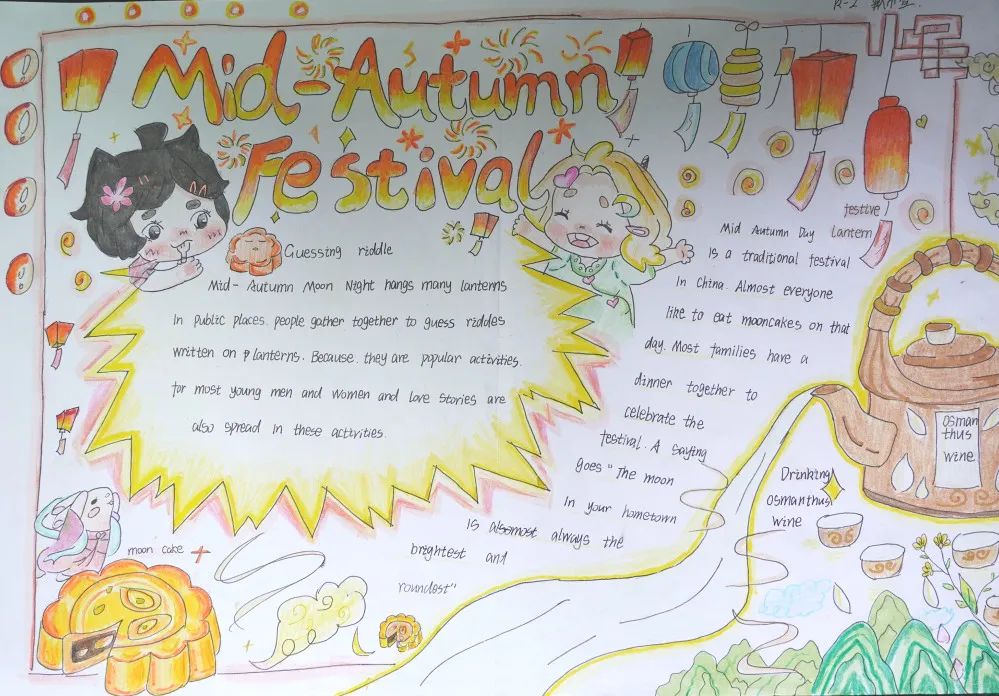 Mid-Autumn
Festival
Guessing riddle
Mid-Autumn Moon Night hangs many lanterns
In public places. people gather together to guess riddles
written on lanterns. Because they are popular activities.
for most young men and women and love stories are
also spread in these activities.
festive
lantern
Mid Autumn Day
Is a traditional festival
In China. Almost everyone
like to eat mooncakes on that
day. Most families have a
dinner together to
celebrate the
festival. A saying
goes "The moon
In your hometown
Is alsomost always the
brightest and
roundest"
osman
thus
wine.
Drinking
osmanthus
wine
moon cake